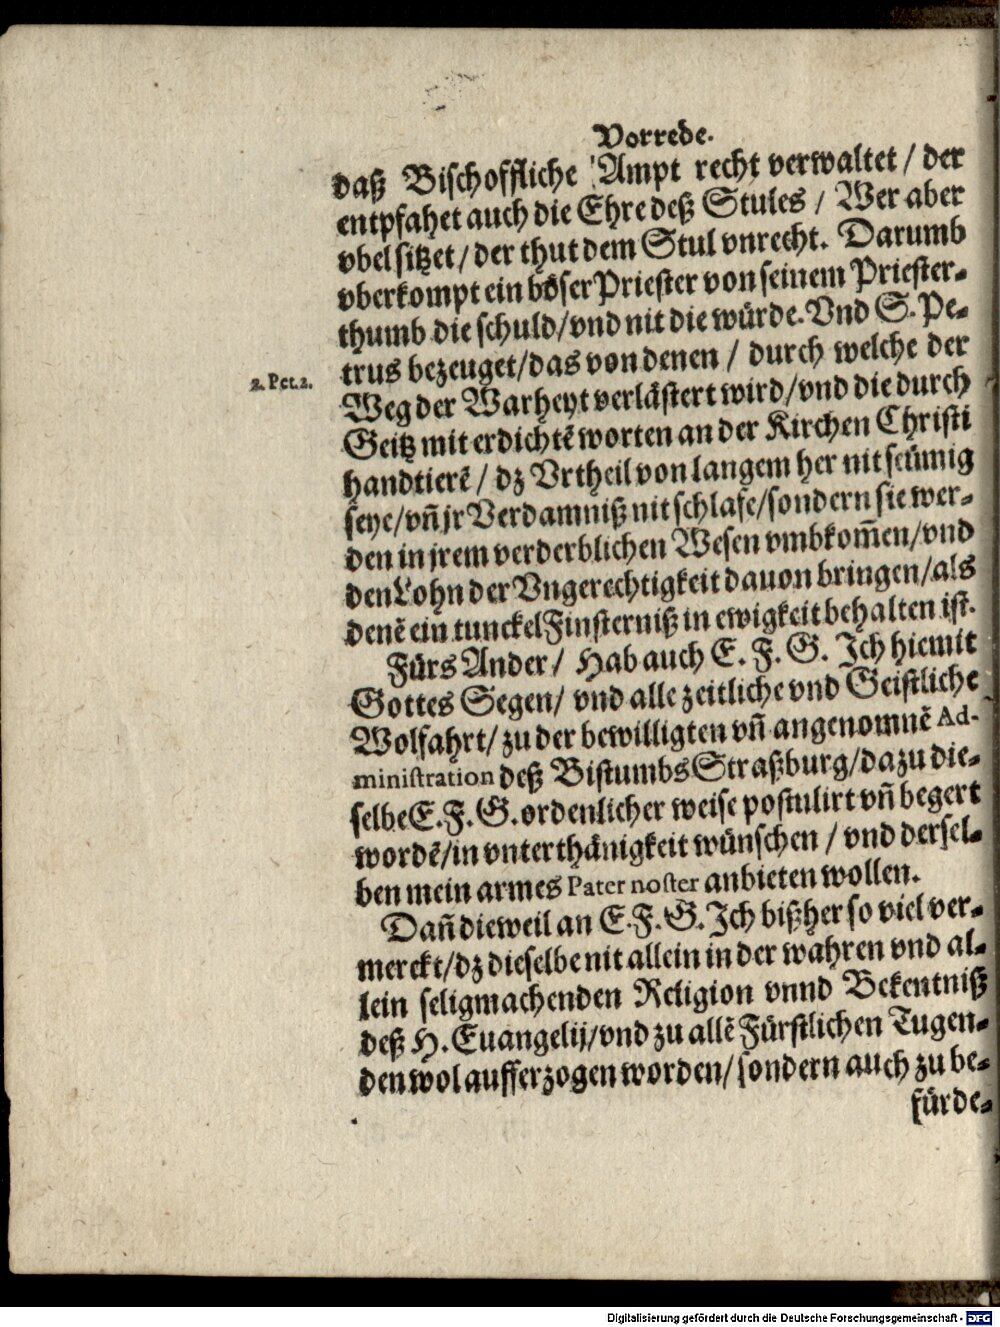 Vorrede.
daß Bischoffliche Ampt recht verwaltet / der
entpfahet auch die Ehre deß Stules / Wer aber
vbel sitzet / der thut dem Stul vnrecht. Darumb
vberkompt ein böser Priester von seinem Priester-
thumb die schuld / vnd nit die würde. Vnd S. Pe-
trus bezeuget / das von denen / durch welche der
2. Pet. 2.
Weg der Warheyt verlästert wird / vnd die durch
Geitz mit erdichtē worten an der Kirchen Christi
handtierē / dz Vrtheil von langem her nit seümig
seye / vñ jr Verdamniß nit schlafe / sondern sie wer-
den in jrem verderblichen Wesen vmbkom̄en / vnd
den Lohn der Vngerechtigkeit dauon bringen / als
denē ein tunckel Finsterniß in ewigkeit behalten ist.
Fürs Ander / Hab auch E. F. G. Ich hiemit
Gottes Segen / vnd alle zeitliche vnd Geistliche
Wolfahrt / zu der bewilligten vñ angenomnē Ad-
ministration deß Bistumbs Straßburg / dazu die-
selbe E. F. G. ordenlicher weise postulirt vñ begert
wordē / in vnterthänigkeit wünschen / vnd dersel-
ben mein armes Pater noster anbieten wollen.
Dañ dieweil an E. F. G. Ich bißher so viel ver-
merckt / dz dieselbe nit allein in der wahren vnd al-
lein seligmachenden Religion vnnd Bekentniß
deß H. Euangelij / vnd zu allē Fürstlichen Tugen-
den wol aufferzogen worden / sondern auch zu be-
fürde-
Digitalisierung gefördert durch die Deutsche Forschungsgemeinschaft - DFG